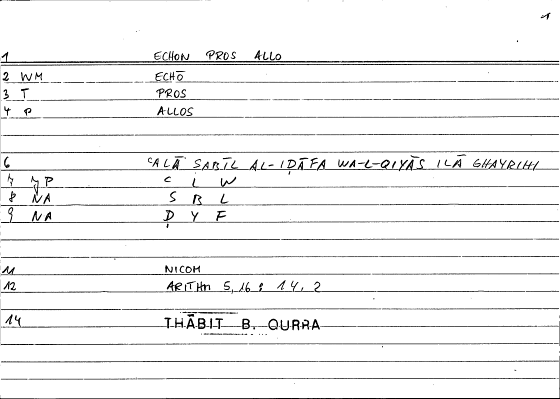 1
1 ECHON PROS ALLO
2 WM ECHŌ
3 T PROS
4 P ALLOS
6 ʿALĀ SABĪL AL-IḌĀFA WA-L-QIYĀS ILĀ GHAYRIHI
7 P ʿ L W
8 NA S B L
9 NA Ḍ Y F
11 NICOM
12 ARITHM 5,16 : 14,2
14 THĀBIT B. QURRA